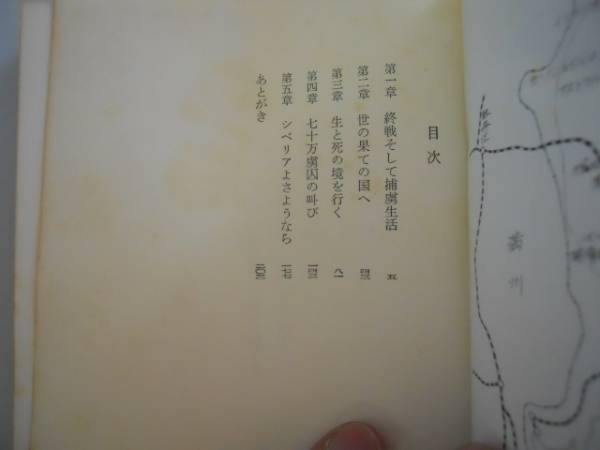 目次
第一章 終戦そして捕虜生活 五
第二章 世の果ての国へ
第三章 生と死の境を行く 八一
第四章 七十万虜囚の叫び
第五章 シベリアよさようなら
あとがき
満州